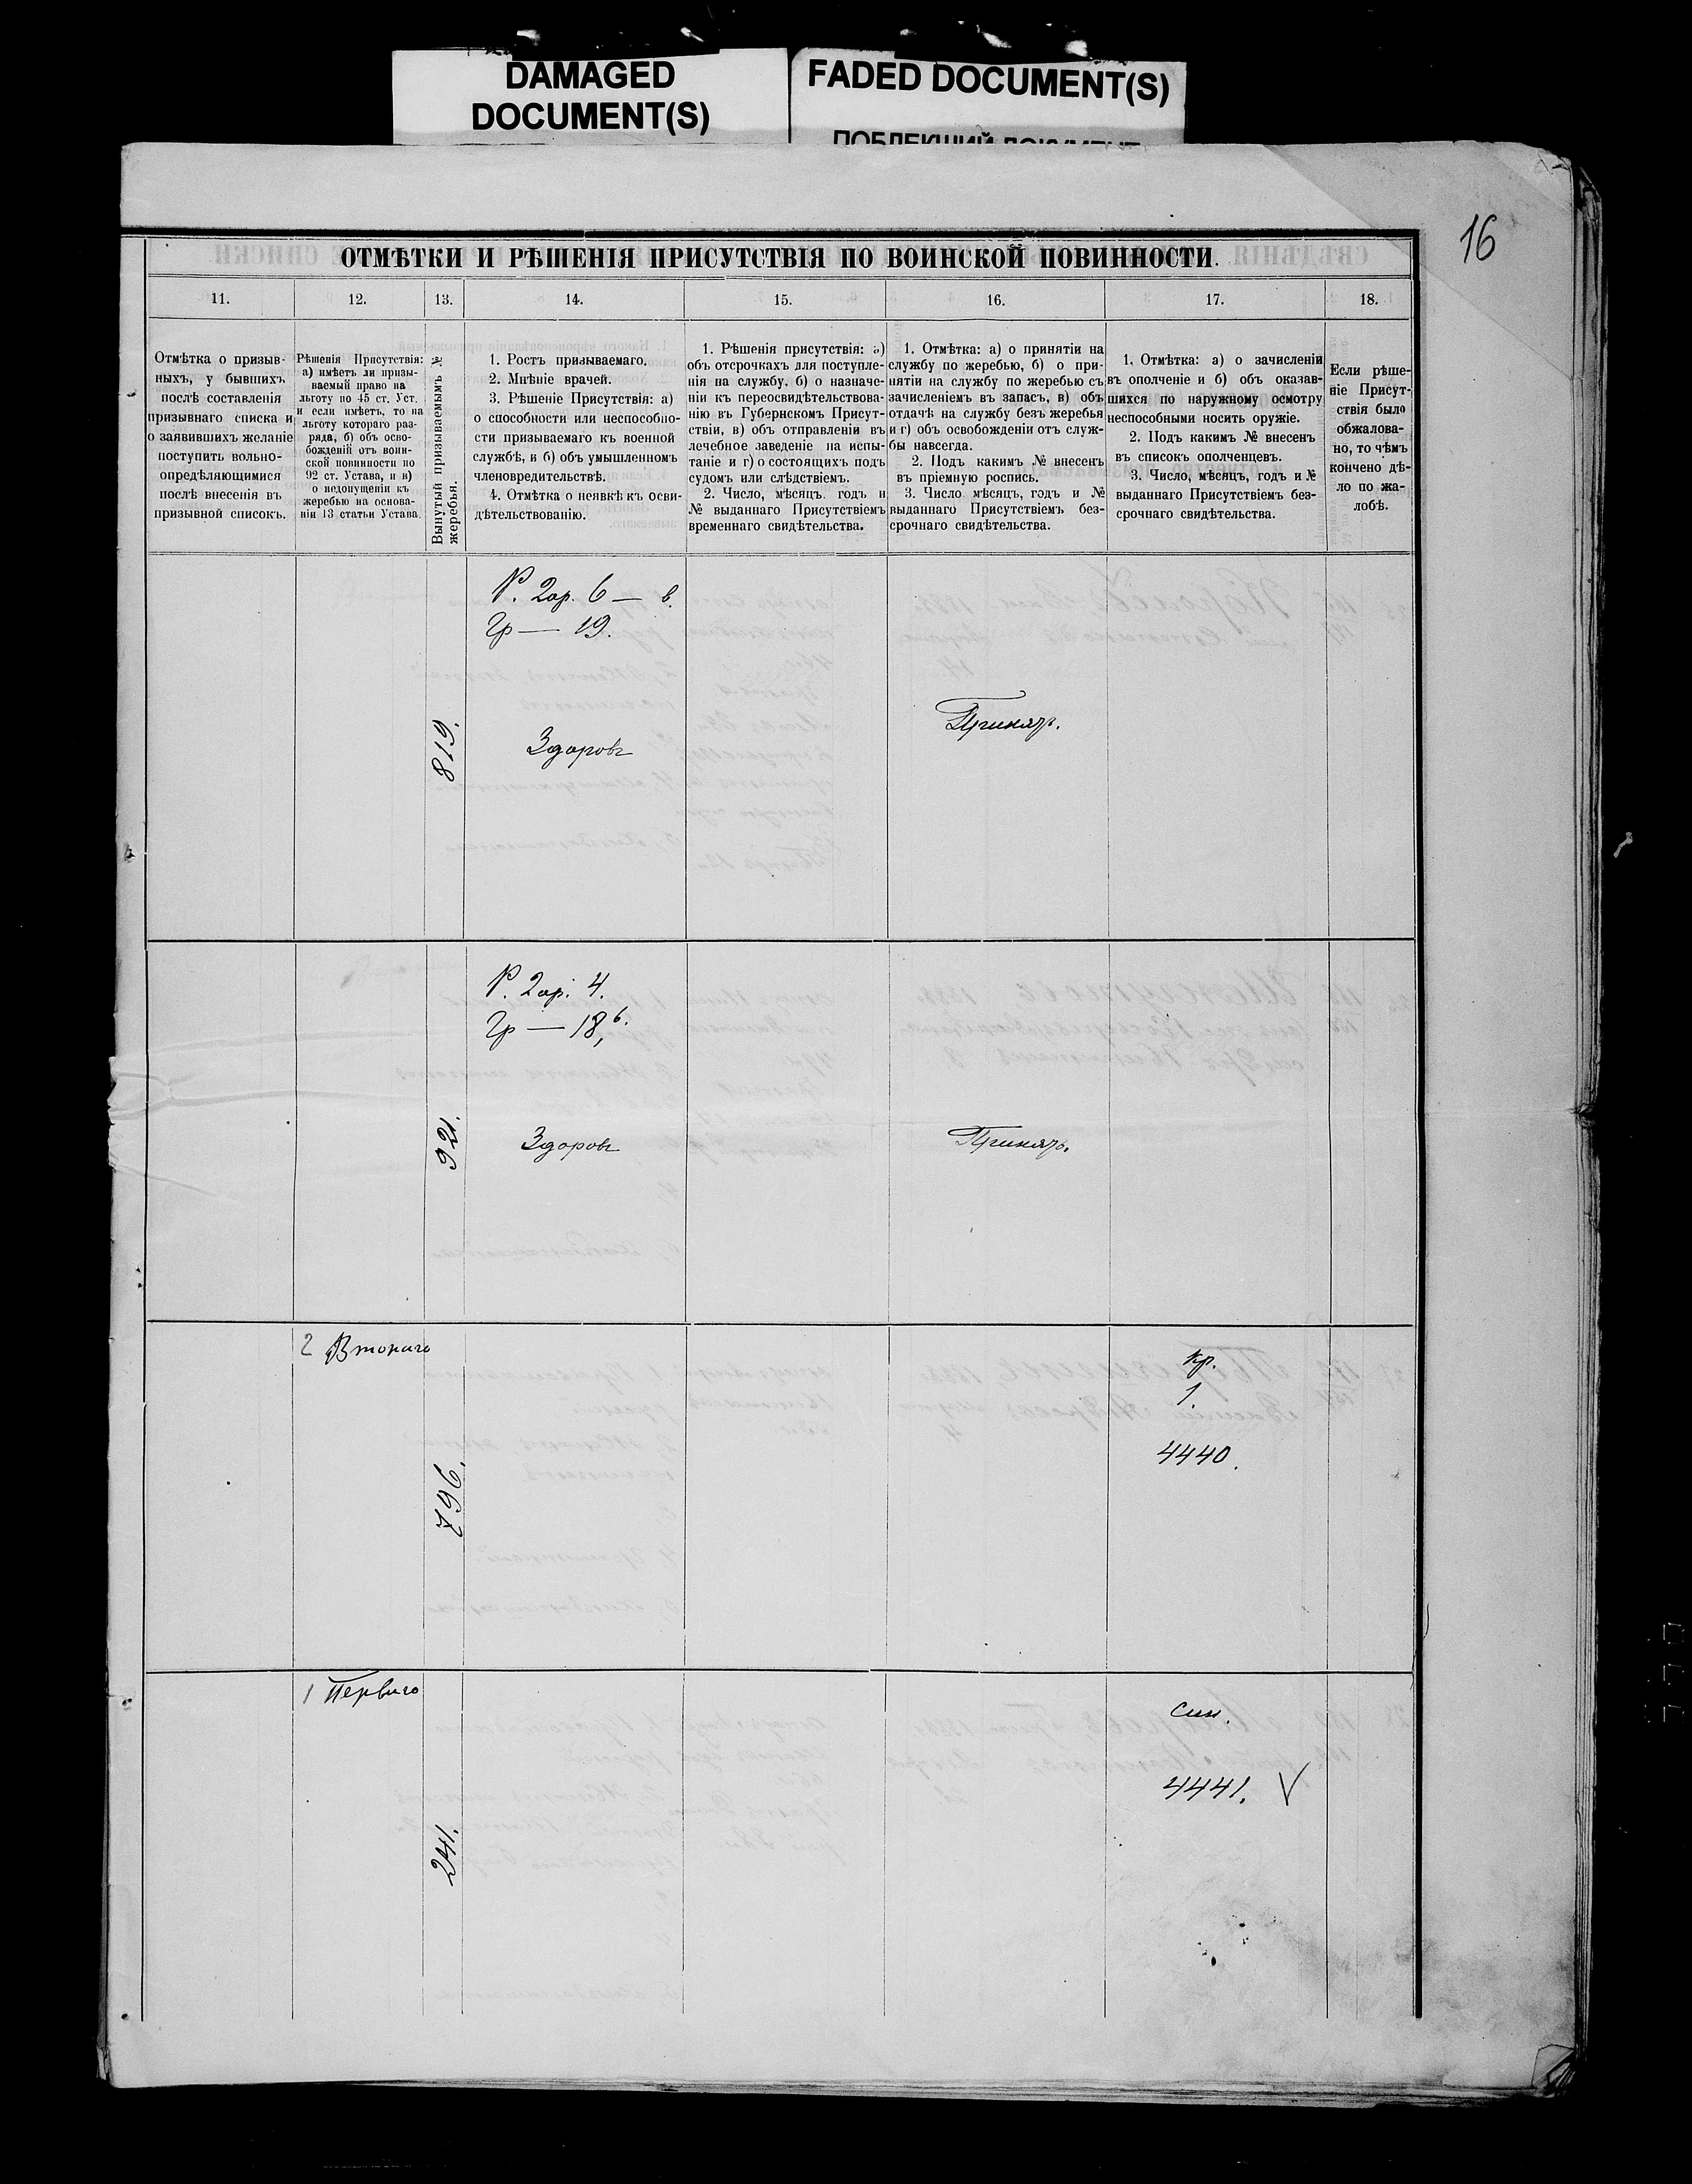 DAMAGED
DOCUMENT(S)
FADED DOCUMENT(S)
ПОБЛЕКШИЙ ДОКУМЕНТ
16
ОТМѢТКИ И РѢШЕНІЯ ПРИСУТСТВІЯ ПО ВОИНСКОЙ ПОВИННОСТИ.
11.
12.
13.
14.
15.
16.
17.
18.
Отмѣтка о призыв-
ныхъ, у бывшихъ
послѣ составленія
призывнаго списка и
о заявившихъ желаніе
поступить вольно-
опредѣляющимися
послѣ внесенія въ
призывной списокъ.
Рѣшенія Присутствія:
а) имѣетъ ли призы-
ваемый право на
льготу по 45 ст. Уст.
и если имѣетъ, то на
льготу котораго раз-
ряда, б) объ осво-
божденій отъ воин-
ской повинности по
92 ст. Устава, и в)
о недопущеніи къ
жеребью на основа-
ніи 13 статьи Устава.
Вынутый призываемымъ №
жеребья.
1. Ростъ призываемаго.
2. Мнѣніе врачей.
3. Рѣшеніе Присутствія: а)
о способности или неспособно-
сти призываемаго къ военной
службѣ, и б) объ умышленномъ
членовредительствѣ.
4. Отмѣтка о неявкѣ къ осви-
дѣтельствованію.
1. Рѣшенія присутствія: а)
объ отсрочкахъ для поступле-
нія на службу, б) о назначе-
ніи къ переосвидѣтельствова-
нію въ Губернскомъ Присут-
ствіи, в) объ отправленіи въ
лечебное заведеніе на испы-
таніе и г) о состоящихъ подъ
судомъ или слѣдствіемъ.
2. Число, мѣсяцъ, годъ и
№ выданнаго Присутствіемъ
временнаго свидѣтельства.
1. Отмѣтка: а) о принятіи на
службу по жеребью, б) о при-
нятіи на службу по жеребью съ
зачисленіемъ въ запасъ, в) объ
отдачѣ на службу безъ жеребья
и г) объ освобожденіи отъ служ-
бы навсегда.
2. Подъ какимъ № внесенъ
въ пріемную роспись.
3. Число мѣсяцъ, годъ и №
выданнаго Присутствіемъ без-
срочнаго свидѣтельства.
1. Отмѣтка: а) о зачисленіи
въ ополченіе и б) объ оказав-
шихся по наружному осмотру
неспособными носить оружіе.
2. Подъ какимъ № внесенъ
въ списокъ ополченцевъ.
3. Число, мѣсяцъ, годъ и №
выданнаго Присутствіемъ без-
срочнаго свидѣтельства.
Если рѣше-
ніе Присут-
ствія было
обжалова-
но, то чѣмъ
кончено дѣ-
ло по жа-
лобѣ.
819.
Р. 2ар. 6 — в.
Гр — 19.
Здоровъ
Принятъ.
921.
Р. 2ар. 4.
Гр — 18,6.
Здоровъ
Принятъ.
2 Втораго
796.
кр.
1.
4440.
1 Перваго
241.
син.
4441. V